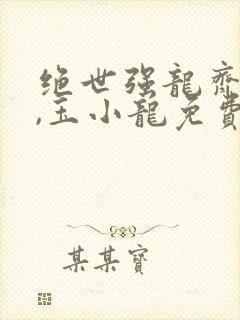 绝世强龍齊
,王小龍免費
某某寶